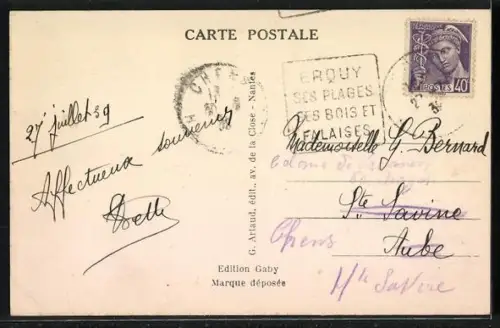 CARTE POSTALE
27 juillet 39
Affectueux souvenir
G. Artaud, édit., av. de la Close - Nantes
Edition Gaby
Marque déposée
CHENS
ERQUY
SES PLAGES
SES BOIS ET
FALAISES
40
Mademoiselle G. Bernard
Colonie de
Ste Savine
Chens
Aube
Hte Savoie